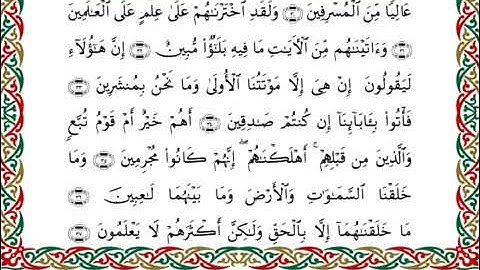 عَالِيًا مِّنَ ٱلْمُسْرِفِينَ ۝٣١ وَلَقَدِ ٱخْتَرْنَٰهُمْ عَلَىٰ عِلْمٍ عَلَى ٱلْعَٰلَمِينَ
۝٣٢ وَءَاتَيْنَٰهُم مِّنَ ٱلْءَايَٰتِ مَا فِيهِ بَلَٰٓؤٌا۟ مُّبِينٌ ۝٣٣ إِنَّ هَٰٓؤُلَآءِ
لَيَقُولُونَ ۝٣٤ إِنْ هِىَ إِلَّا مَوْتَتُنَا ٱلْأُولَىٰ وَمَا نَحْنُ بِمُنشَرِينَ ۝٣٥
فَأْتُوا۟ بِـَٔابَآئِنَآ إِن كُنتُمْ صَٰدِقِينَ ۝٣٦ أَهُمْ خَيْرٌ أَمْ قَوْمُ تُبَّعٍ
وَٱلَّذِينَ مِن قَبْلِهِمْ ۚ أَهْلَكْنَٰهُمْ ۖ إِنَّهُمْ كَانُوا۟ مُجْرِمِينَ ۝٣٧ وَمَا
خَلَقْنَا ٱلسَّمَٰوَٰتِ وَٱلْأَرْضَ وَمَا بَيْنَهُمَا لَٰعِبِينَ ۝٣٨
مَا خَلَقْنَٰهُمَآ إِلَّا بِٱلْحَقِّ وَلَٰكِنَّ أَكْثَرَهُمْ لَا يَعْلَمُونَ ۝٣٩